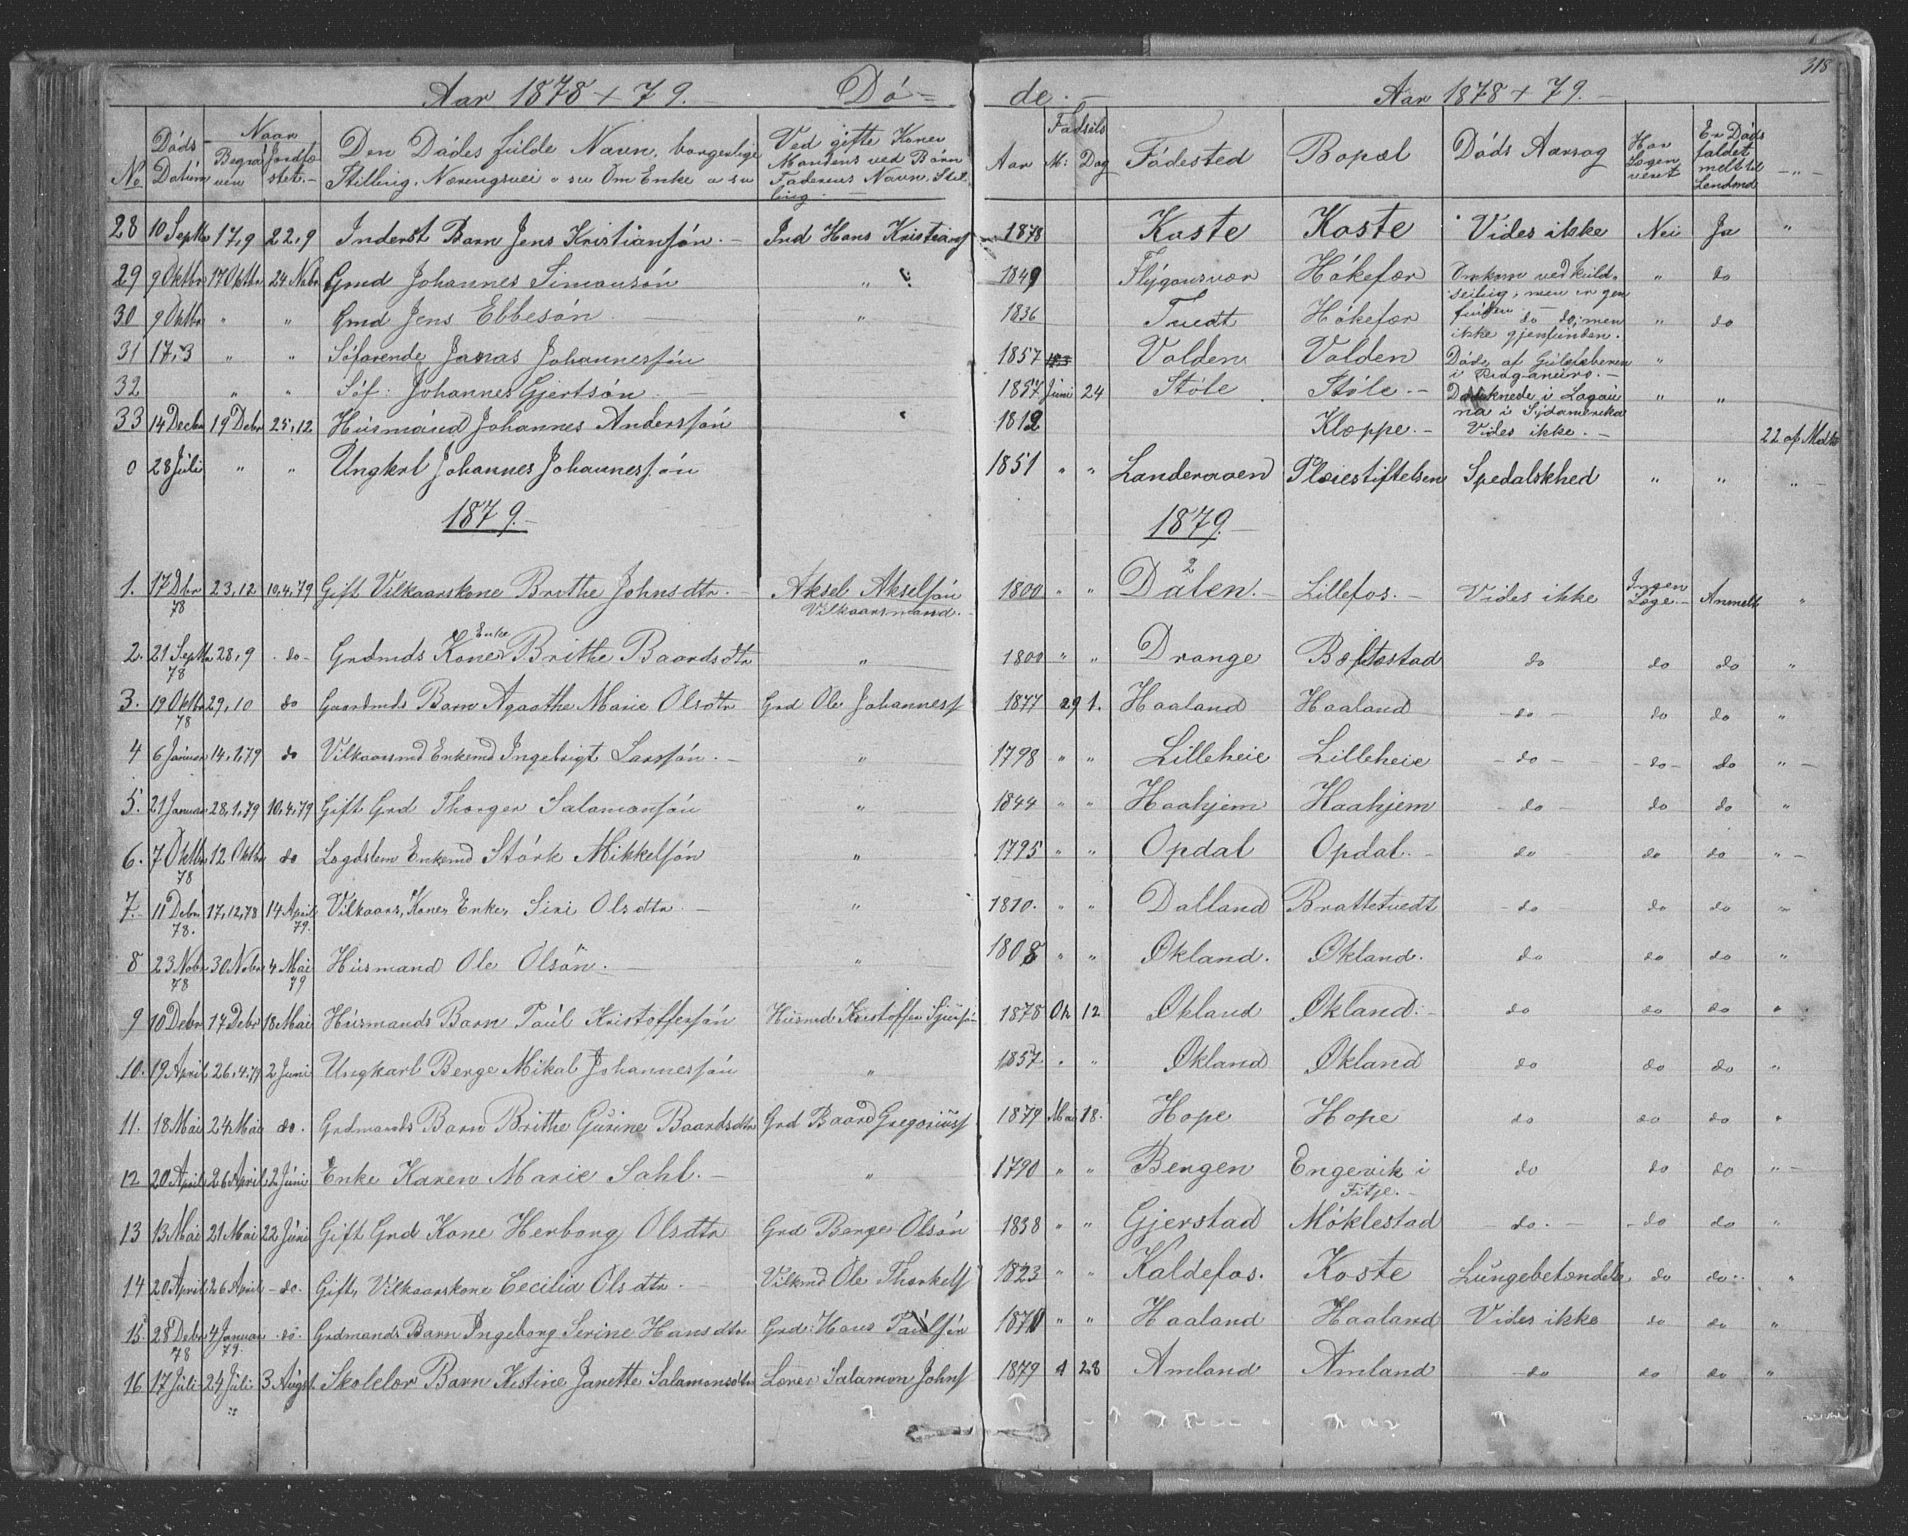 318
Aar 1878 + 79. Dö= de. Aar 1878 + 79.
No Döds Datum Naar Begraven Jordfæstet. Den Dödes fulde Navn, borgerlige Stilling, Næringsvei o sv Om Enke o sv Ved gifte Koner Mandens ved Børn Faderens Navn, Stilling. Födsels Aar M: Dag Födested Bopæl Döds Aarsag Har Lægen veret Er Döds faldet meldt til Lendsmd
28 10 Septbr 17,9 22,9 Inderst Barn Jens Kristiansön. Ind Hans Kristians 1878 Koste Koste Vides ikke Nei Ja "
29 9 Oktbr 17 Oktbr 24 Nobr Grmd Johannes Simonsön " 1849 Flygansvær Hökefær Omkom ved Kuldseiling, men er gjenfunden " do
30 9 Oktbr " " Grmd Jens Ebbesön " 1836 Tvedt Hökefær do do, men ikke gjenfunden. " do
31 17,3 " " Söfarende Jonas Johannessön 1857 Valden Valden Döde af Guleleberen i "
32 " " Söf: Johannes Gjertsön 1857 Juni 24 Stöle Stöle Druknede i i Sydamerika " "
33 14 Decbr 19 Debr 25,12 Husmand Johannes Anderssön 1812 Kloppe. Vides ikke.
22 af
0 28 Juli " " Ungkrl Johannes Johannessön 1851 " " Landeraaen Pleiestiftelsen Spedalskhed " " "
1879. 1879.
1. 17 Dbr 78 23,12 10,4,79 Gift Vilkaarskone Brithe Johnsdtr. Aksel Akselsön Vilkaarsmand. 1800 " " Dalen. Lillefos. Vides ikke Ingen Læge. Anmelt "
2. 21 Septbr 78 28,9 do Grdmds Kone Enke Brithe Baardsdtr " 1800 " " Drange Bæltestad do do do "
3. 19 Oktbr 78 29,10 do Gaardmds Barn Agaathe Marie Olsdtr Grd Ole Johanness 1877 29 1. Haaland Haaland do do do "
4 6 Januar 14,1,79 do Vilkaarsmd Enkemd Ingebrigt Larssön. " 1798 " " Lilleheie Lilleheie do do do "
5. 21 Januar 28,1,79 10,4,79 Gift Grd Thorger Salamonsön " 1844 " " Haahjem Haahjem do do do "
6. 7 Oktbr 78 12 Oktbr do Lægdslem Enkemd Störk Mikkelsön " 1795 " " Opdal Opdal. do do do "
7. 11 Debr 78. 17,12,78 14 April 79. Vilkaars, Kone, Enke, Siri Olsdtr " 1810. " " Dalland Brattetvedt do do do "
8 23 Nobr 78 30 Nobr 4 Mai 79 Husmand Ole Olsön. " 1808 " " Økland. Økland. do do do "
9 10 Debr 17 Debr 18 Mai Husmands Barn Paul Kristoffersön Husmd Kristoffer 1878 Ok 12 Økland Økland do do do "
10. 19 April 26.4.79 2 Juni Ungkarl Berge Mikal Johannessön " 1857 " " Økland Økland do do do "
11. 18 Mai 24 Mai do. Grdmands Barn Brithe Gurine Baardsdtr Grd Baard Gregoriuss 1879 Mai 18. Hope Hope do do do "
12 20 April 26 April 2 Juni Enke Karen Marie Sahl. " 1790 " " Bergen Engevik i Fitje. do do do "
13 13 Mai 21 Mai 22 Juni Gift Grd Kone Herborg Olsdtr Grd Berge Olsön 1838 " " Gjerstad Möklestad do. do do "
14 20 April 26 April do. Gift, Vilkaarskone Cecilia Olsdtr. Vilkmd Ole Thorkels 1823 " " Kaldefos. Koste Lungebetændelse do do "
15. 28 Debr 78 4 Januar 79. do. Grdmands Barn Ingeborg Serine Hansdtr Grd: Hans Paulsön 1870 " " Haaland Haaland Vides ikke do do "
16 17 Juli 24 Juli 3 August Skolelær Barn Kistine Janette Salamonsdtr Lærer Salamon Johns 1879 4 28 Amland Amland do do do "